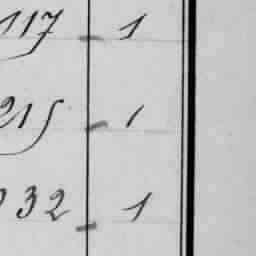 117 - 1
215 - 1
32 - 1